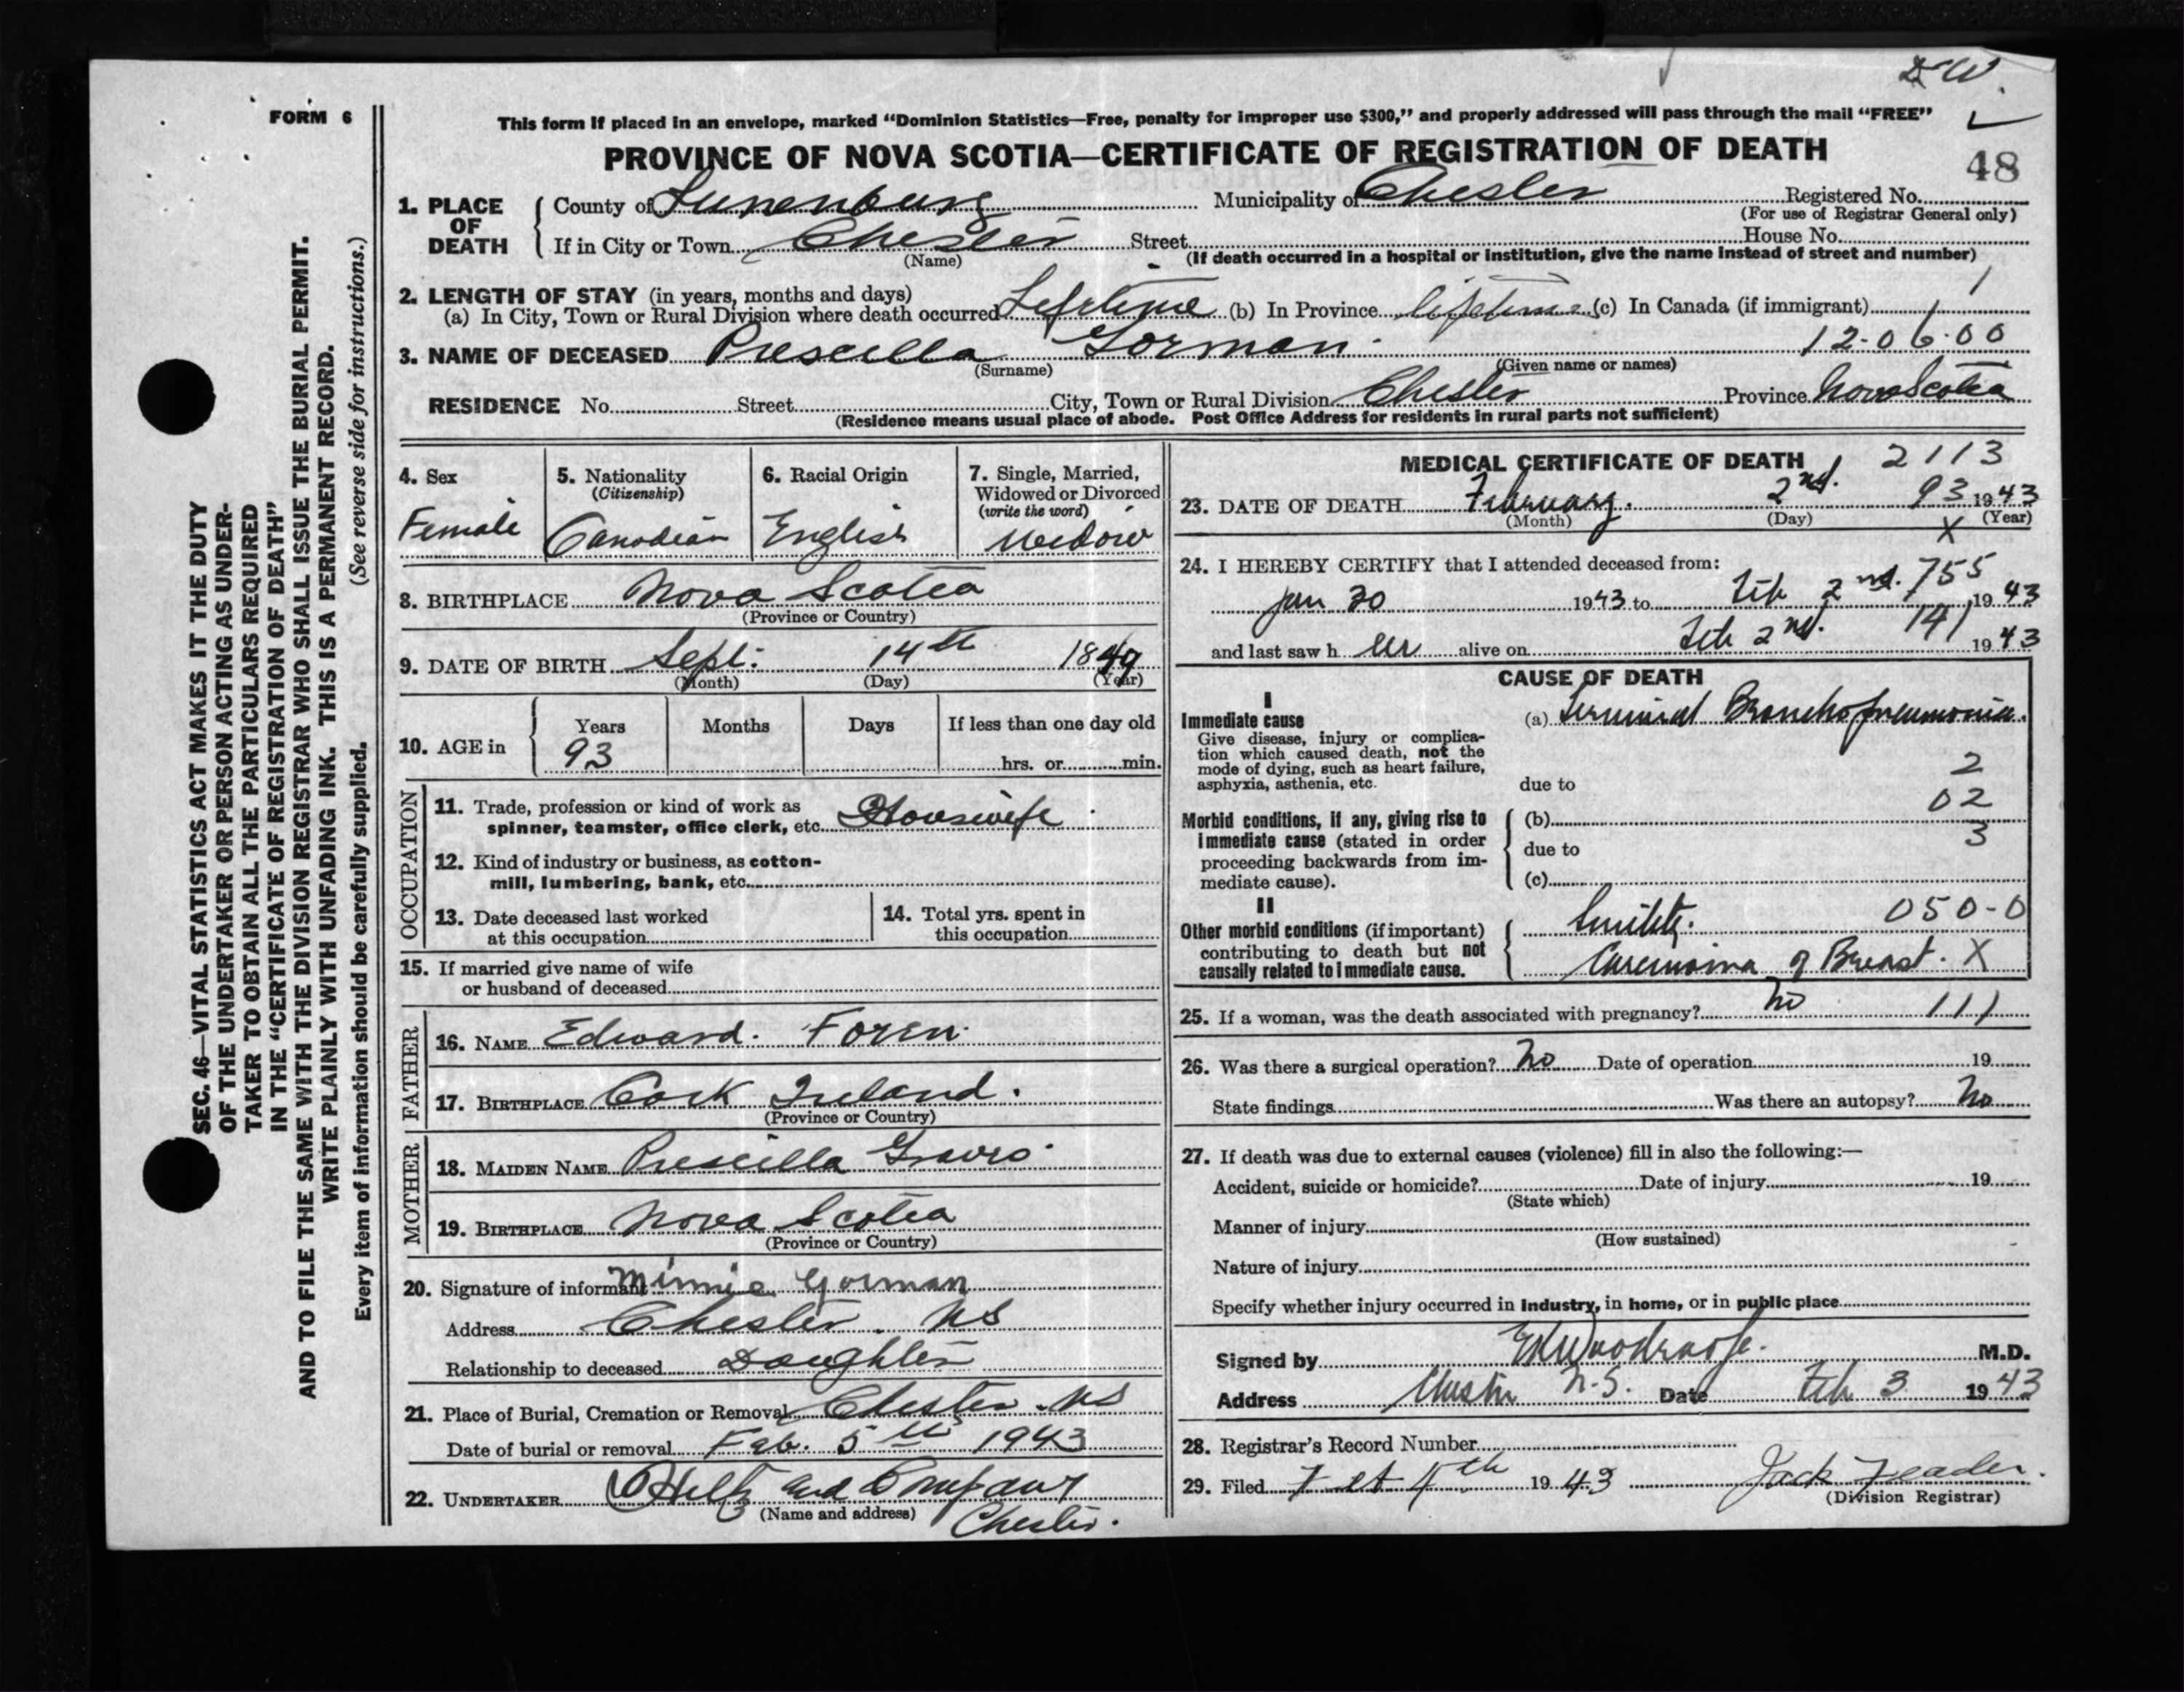 D W
FORM 6
This form if placed in an envelope, marked “Dominion Statistics—Free, penalty for improper use $300,” and properly addressed will pass through the mail “FREE”
PROVINCE OF NOVA SCOTIA—CERTIFICATE OF REGISTRATION OF DEATH
48
1. PLACE OF DEATH
County of Lunenburg Municipality of Chester Registered No.
(For use of Registrar General only)
If in City or Town Chester Street House No.
(Name) (If death occurred in a hospital or institution, give the name instead of street and number)
2. LENGTH OF STAY (in years, months and days)
(a) In City, Town or Rural Division where death occurred Lifetime (b) In Province lifetime (c) In Canada (if immigrant)
3. NAME OF DECEASED Prescilla Gorman 12-06-00
(Surname) (Given name or names)
RESIDENCE No. Street City, Town or Rural Division Chester Province Nova Scotia
(Residence means usual place of abode. Post Office Address for residents in rural parts not sufficient)
4. Sex
Female
5. Nationality
(Citizenship)
Canadian
6. Racial Origin
English
7. Single, Married,
Widowed or Divorced
(write the word)
Widow
8. BIRTHPLACE Nova Scotia
(Province or Country)
9. DATE OF BIRTH Sept. 14th 1849
(Month) (Day) (Year)
10. AGE in
Years Months Days If less than one day old
93 hrs. or min.
OCCUPATION
11. Trade, profession or kind of work as
spinner, teamster, office clerk, etc. Housewife
12. Kind of industry or business, as cotton-
mill, lumbering, bank, etc.
13. Date deceased last worked
at this occupation
14. Total yrs. spent in
this occupation
15. If married give name of wife
or husband of deceased
FATHER
16. NAME Edward Foren
17. BIRTHPLACE Cork Ireland.
(Province or Country)
MOTHER
18. MAIDEN NAME Prescilla Graves
19. BIRTHPLACE Nova Scotia
(Province or Country)
20. Signature of informant Minnie Gorman
Address Chester. NS
Relationship to deceased Daughter
21. Place of Burial, Cremation or Removal Chester. NS
Date of burial or removal Feb. 5th 1943
22. UNDERTAKER and Company
(Name and address) Chester.
MEDICAL CERTIFICATE OF DEATH 2113
23. DATE OF DEATH February. 2nd. 93 1943
(Month) (Day) (Year)
X
24. I HEREBY CERTIFY that I attended deceased from:
755
Jan 30 1943 to Feb 2nd. 1943
141
and last saw h er alive on Feb 2nd. 1943
CAUSE OF DEATH
I
Immediate cause
Give disease, injury or complica-
tion which caused death, not the
mode of dying, such as heart failure,
asphyxia, asthenia, etc.
(a) Terminal Bronchopneumonia.
2
due to
02
Morbid conditions, if any, giving rise to
immediate cause (stated in order
proceeding backwards from im-
mediate cause).
(b)
3
due to
(c)
II
Other morbid conditions (if important)
contributing to death but not
causally related to immediate cause.
Senility. 050-0
Carcinoma of Breast. X
25. If a woman, was the death associated with pregnancy? No 111
26. Was there a surgical operation? No Date of operation 19
State findings Was there an autopsy? No
27. If death was due to external causes (violence) fill in also the following:—
Accident, suicide or homicide? Date of injury 19
(State which)
Manner of injury
(How sustained)
Nature of injury
Specify whether injury occurred in Industry, in home, or in public place
Signed by M.D.
Address Chester N.S. Date Feb 3 1943
28. Registrar's Record Number
29. Filed 4th 1943 Jack
(Division Registrar)
SEC. 46—VITAL STATISTICS ACT MAKES IT THE DUTY
OF THE UNDERTAKER OR PERSON ACTING AS UNDER-
TAKER TO OBTAIN ALL THE PARTICULARS REQUIRED
IN THE “CERTIFICATE OF REGISTRATION OF DEATH”
AND TO FILE THE SAME WITH THE DIVISION REGISTRAR WHO SHALL ISSUE THE BURIAL PERMIT.
WRITE PLAINLY WITH UNFADING INK. THIS IS A PERMANENT RECORD.
Every item of information should be carefully supplied. (See reverse side for instructions.)